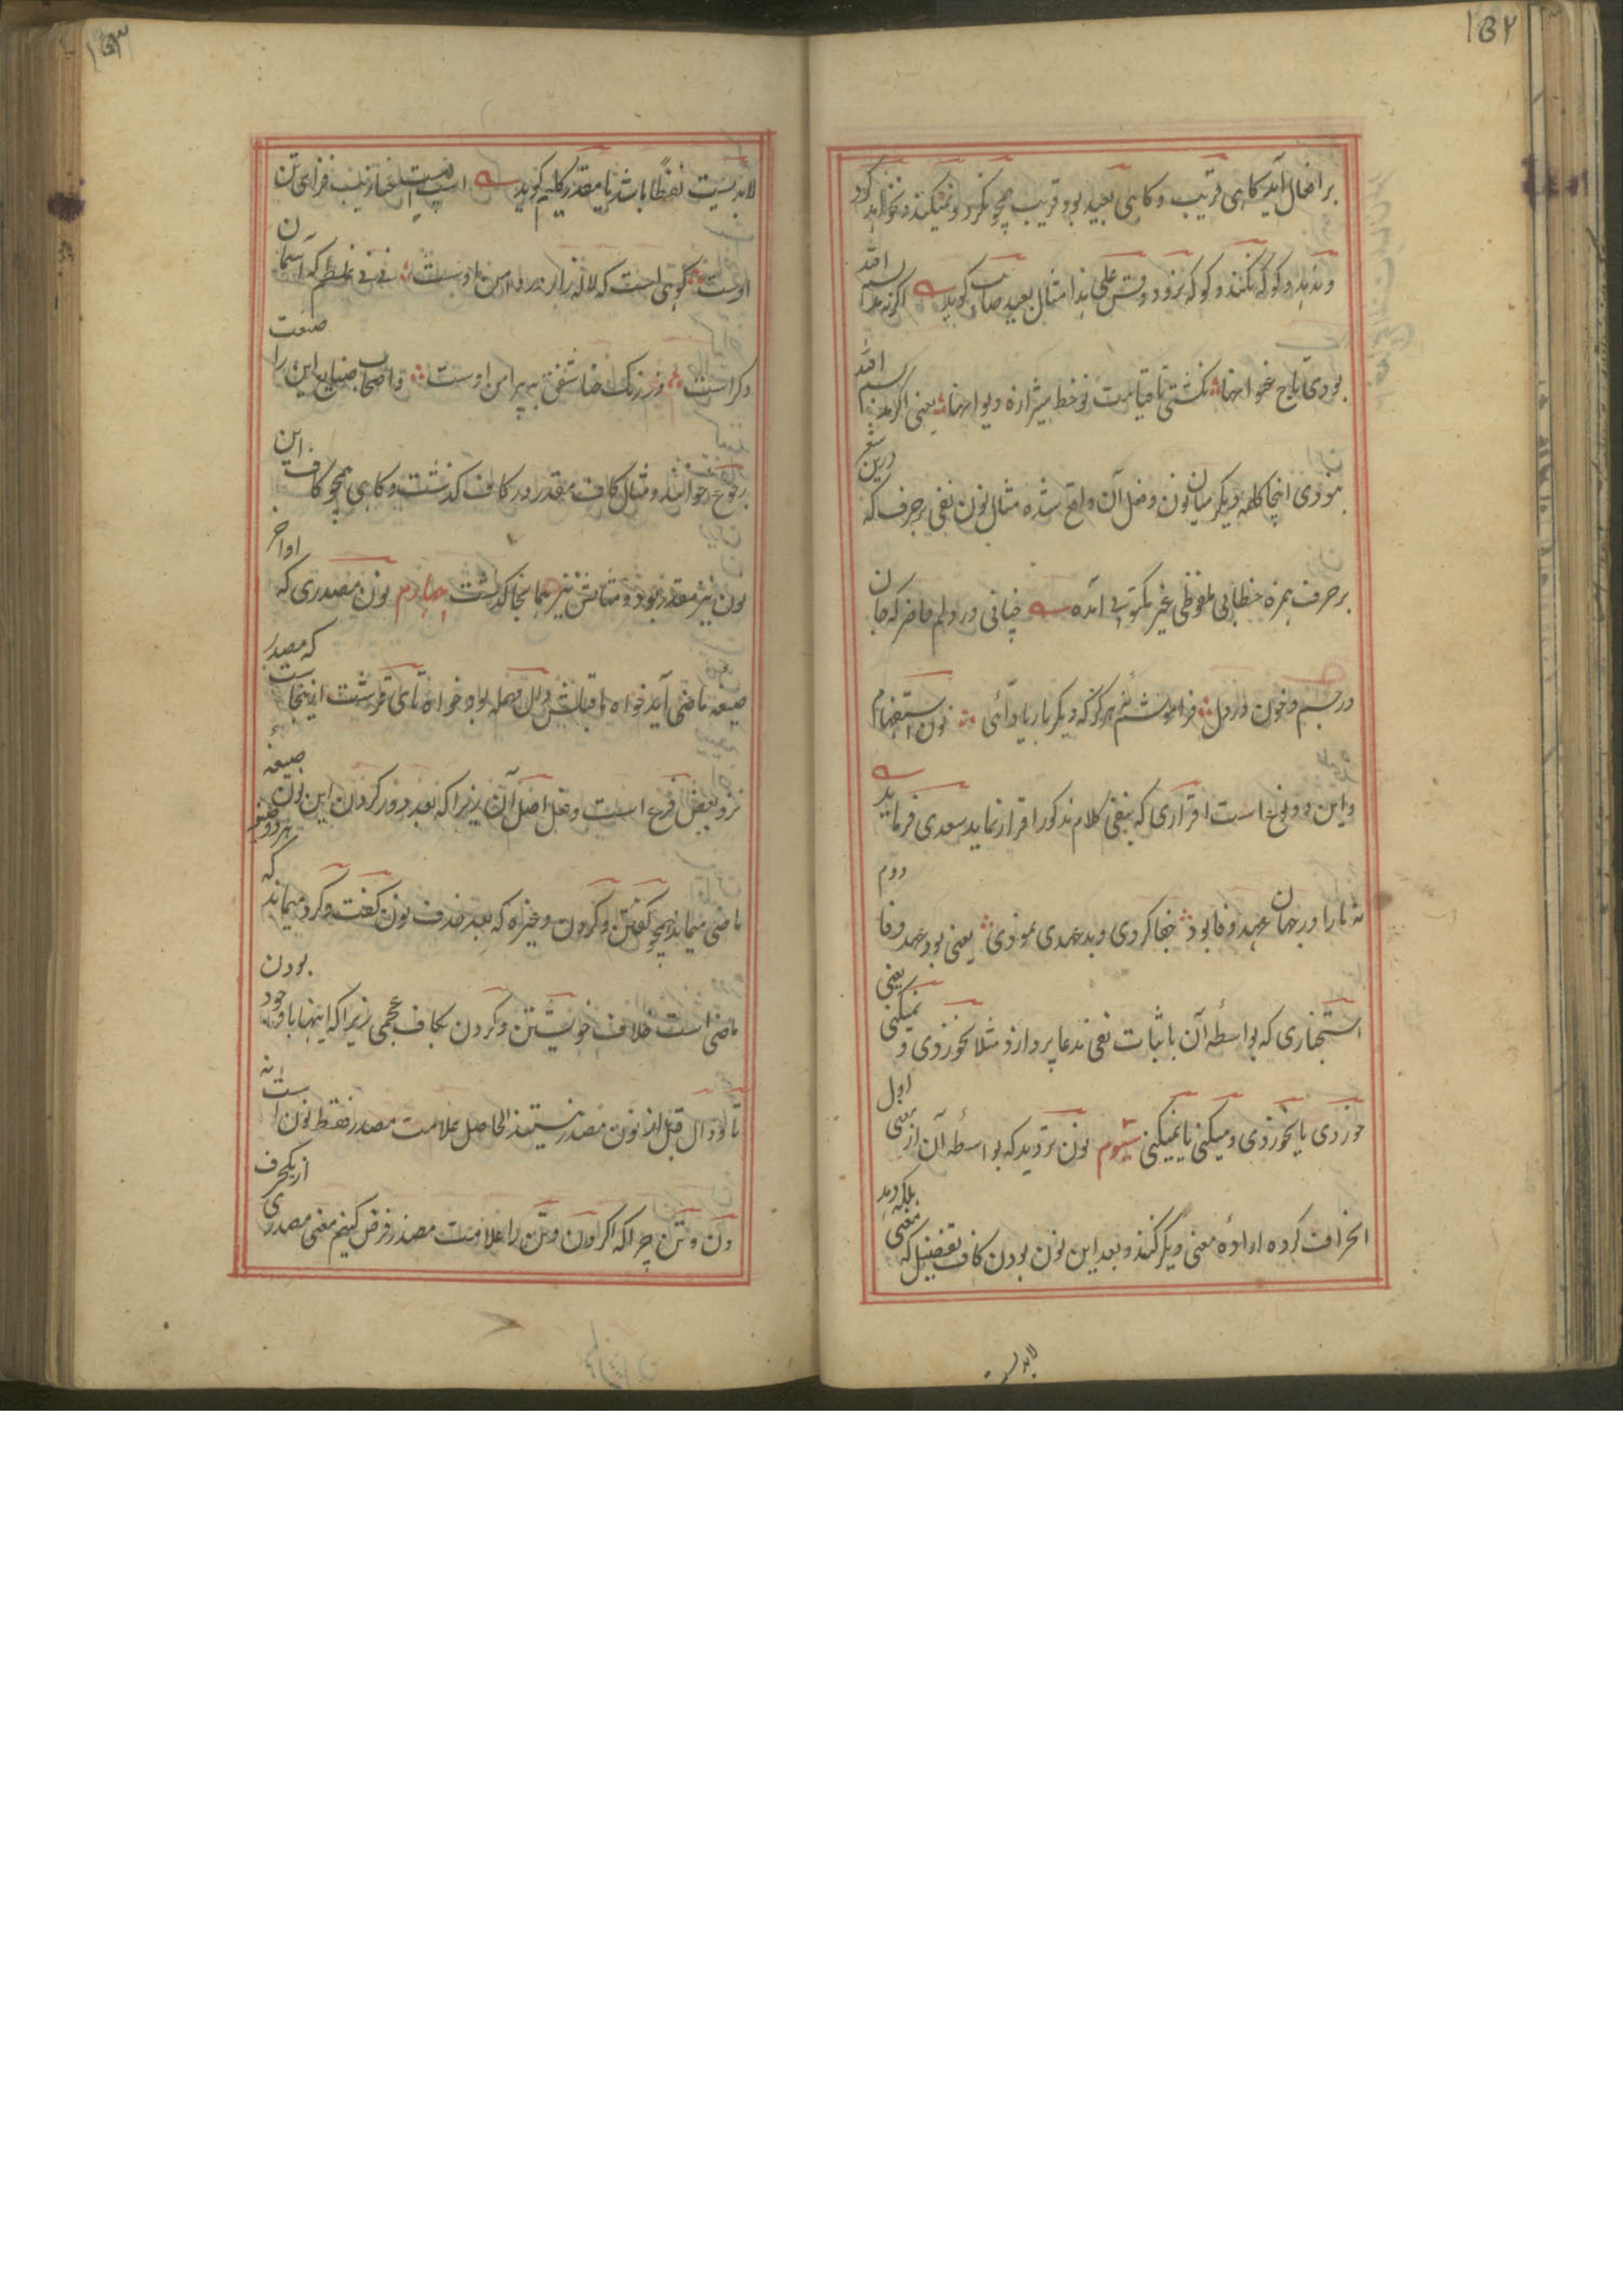 ۱۵۲
بر افعال آید کاهی قریب و کاهی بعید بود قریب همچو نکرد و نمیکند و نخواهد کرد
و ندهد و کو که نکند و کو که نرود و قس علی هذا مثال بعید صائب کوید اگر نه مد بسم الله
بودی تاج عنوانها نکشتی تا قیامت نو خط شیرازه دیوانها یعنی اگر مد بسم الله
نبودی اینجا کلمه دیگر میان نون و فعل آن واقع شده مثال نون نفی بر حرف که درین شعر
بر حرف همزه خطابی ملفوظی غیر مکتوبی آمده چنانی در دلم حاضر که جان
در جسم و خون در دل فراموشم نئی هرگز که دیگر بار یاد آئی نون استفهام
و این دو نوع است اقراری که بنفی کلام مذکور اقرار نماید سعدی فرماید
نه ما را در جهان عهد وفا بود جفا کردی و بد عهدی نمودی یعنی بود عهد وفا دوم
استخباری که بواسطه آن باثبات نفی مدعا پردازد مثلا نخوردی و نمیکنی یعنی
خوردی یا نخوردی و میکنی یا نمیکنی سیوم نون تردید که بواسطه آن از معنی اول
انحراف کرده اراده معنی دیگر کنند و بعد این نون بودن کاف تفضیل که معنی بلکه دهد
لابدیست
۱۵۳
لابدیست لفظا باشد یا مقدر کلیم کوید
اوست کوهی است که لاله زار در دامن اوست نی نی غلطم که آسمان
دکر است در رنک حنا شفق به پیراهن اوست و اصحاب صنایع این را صنعت
رجوع خوانند و مثال کاف مقدر در کاف کذشت و کاهی همچو کاف این
نون نیز مقدر بود و مثالش نیز همانجا کذشت چهارم نون مصدری که اواخر
صیغه ماضی آید خواه ما قبلش دال مهمله بود خواه تای قرشت از ینجاست که مصدر
نزد بعض فرع است و فعل اصل آن زیرا که بعد دور کردن این نون صیغه
ماضی میماند همچو کفتن و کردن و غیره که بعد حذف نون کفت و کرد میماند که هر دو صیغه
ماضی است خلاف خویشتن و کردن بکاف عجمی زیرا که اینها باوجود بودن
تا و دال قبل از نون مصدر نیستند الحاصل علامت مصدر فقط نون است نه
دن و تن چرا که اگر دن و تن را علامت مصدر فرض کنیم معنی مصدری از یکحرف